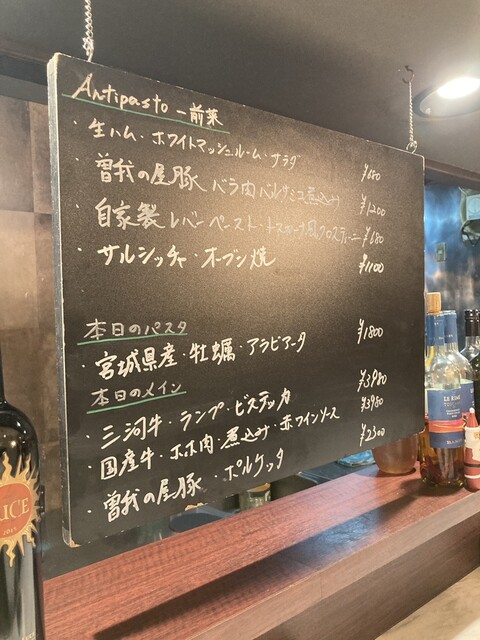 Antipasto ー前菜
・生ハム・ホワイトマッシュルーム・サラダ ¥680
・曽我の屋豚 バラ肉 バルサミコ煮込み ¥1200
・自家製レバーペースト・トスカーナ風クロスティーニ ¥680
・サルシッチャ・オーブン焼 ¥1100
本日のパスタ
・宮城県産・牡蠣・アラビアータ ¥1800
本日のメイン
・三河牛・ランプ・ビステッカ ¥3980
・国産牛・ホホ肉・煮込み・赤ワインソース ¥3980
・曽我の屋豚・ポルケッタ ¥2300